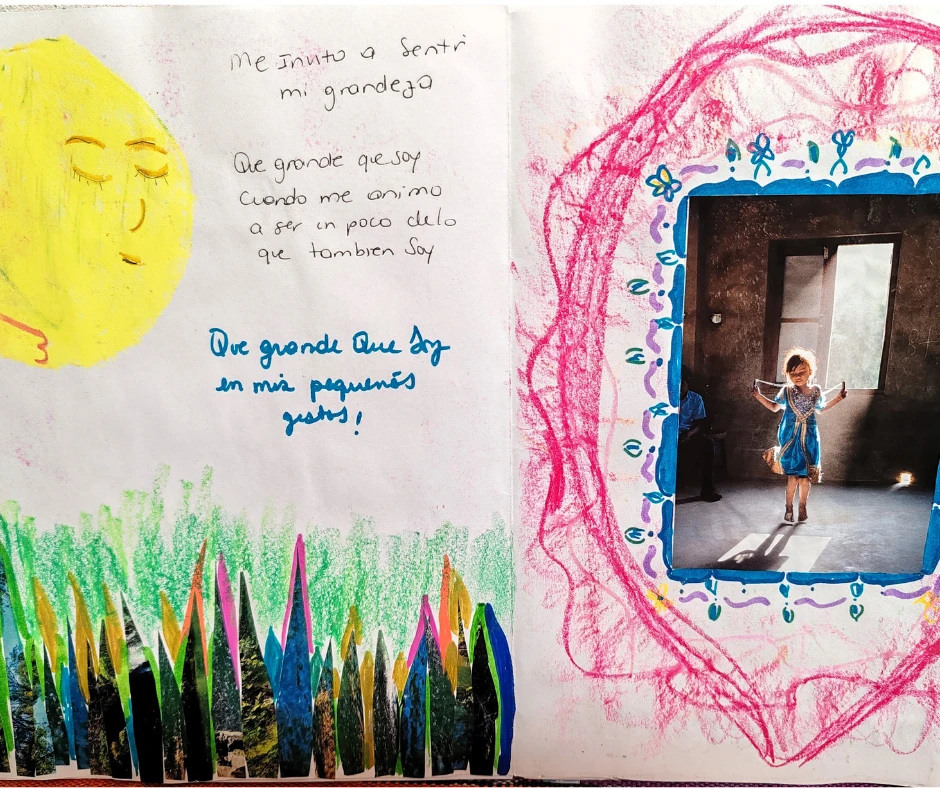 Me Invito a Sentir
mi grandeza
Que grande que soy
cuando me animo
a ser un poco de lo
que tambien Soy
Que grande Que Soy
en mis pequeños
gestos!